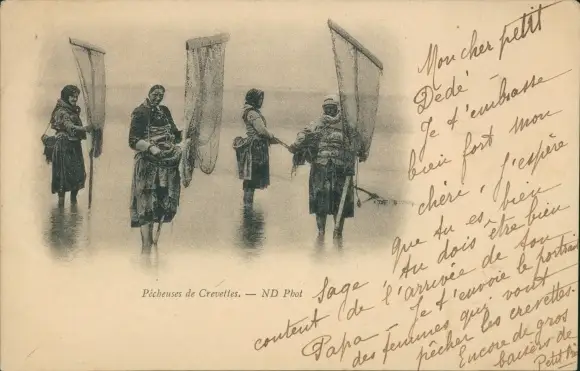 Pêcheuses de Crevettes. — ND Phot
Mon cher petit
Dédé —
Je t'embrasse
bien fort mon
chéri, J'espère
que tu es bien
Sage, Tu dois être bien
content de l'arrivée de ton
Papa — Je t'envoie le portrait
des femmes qui vont
pêcher les crevettes.
Encore de gros
baisers de
Petit